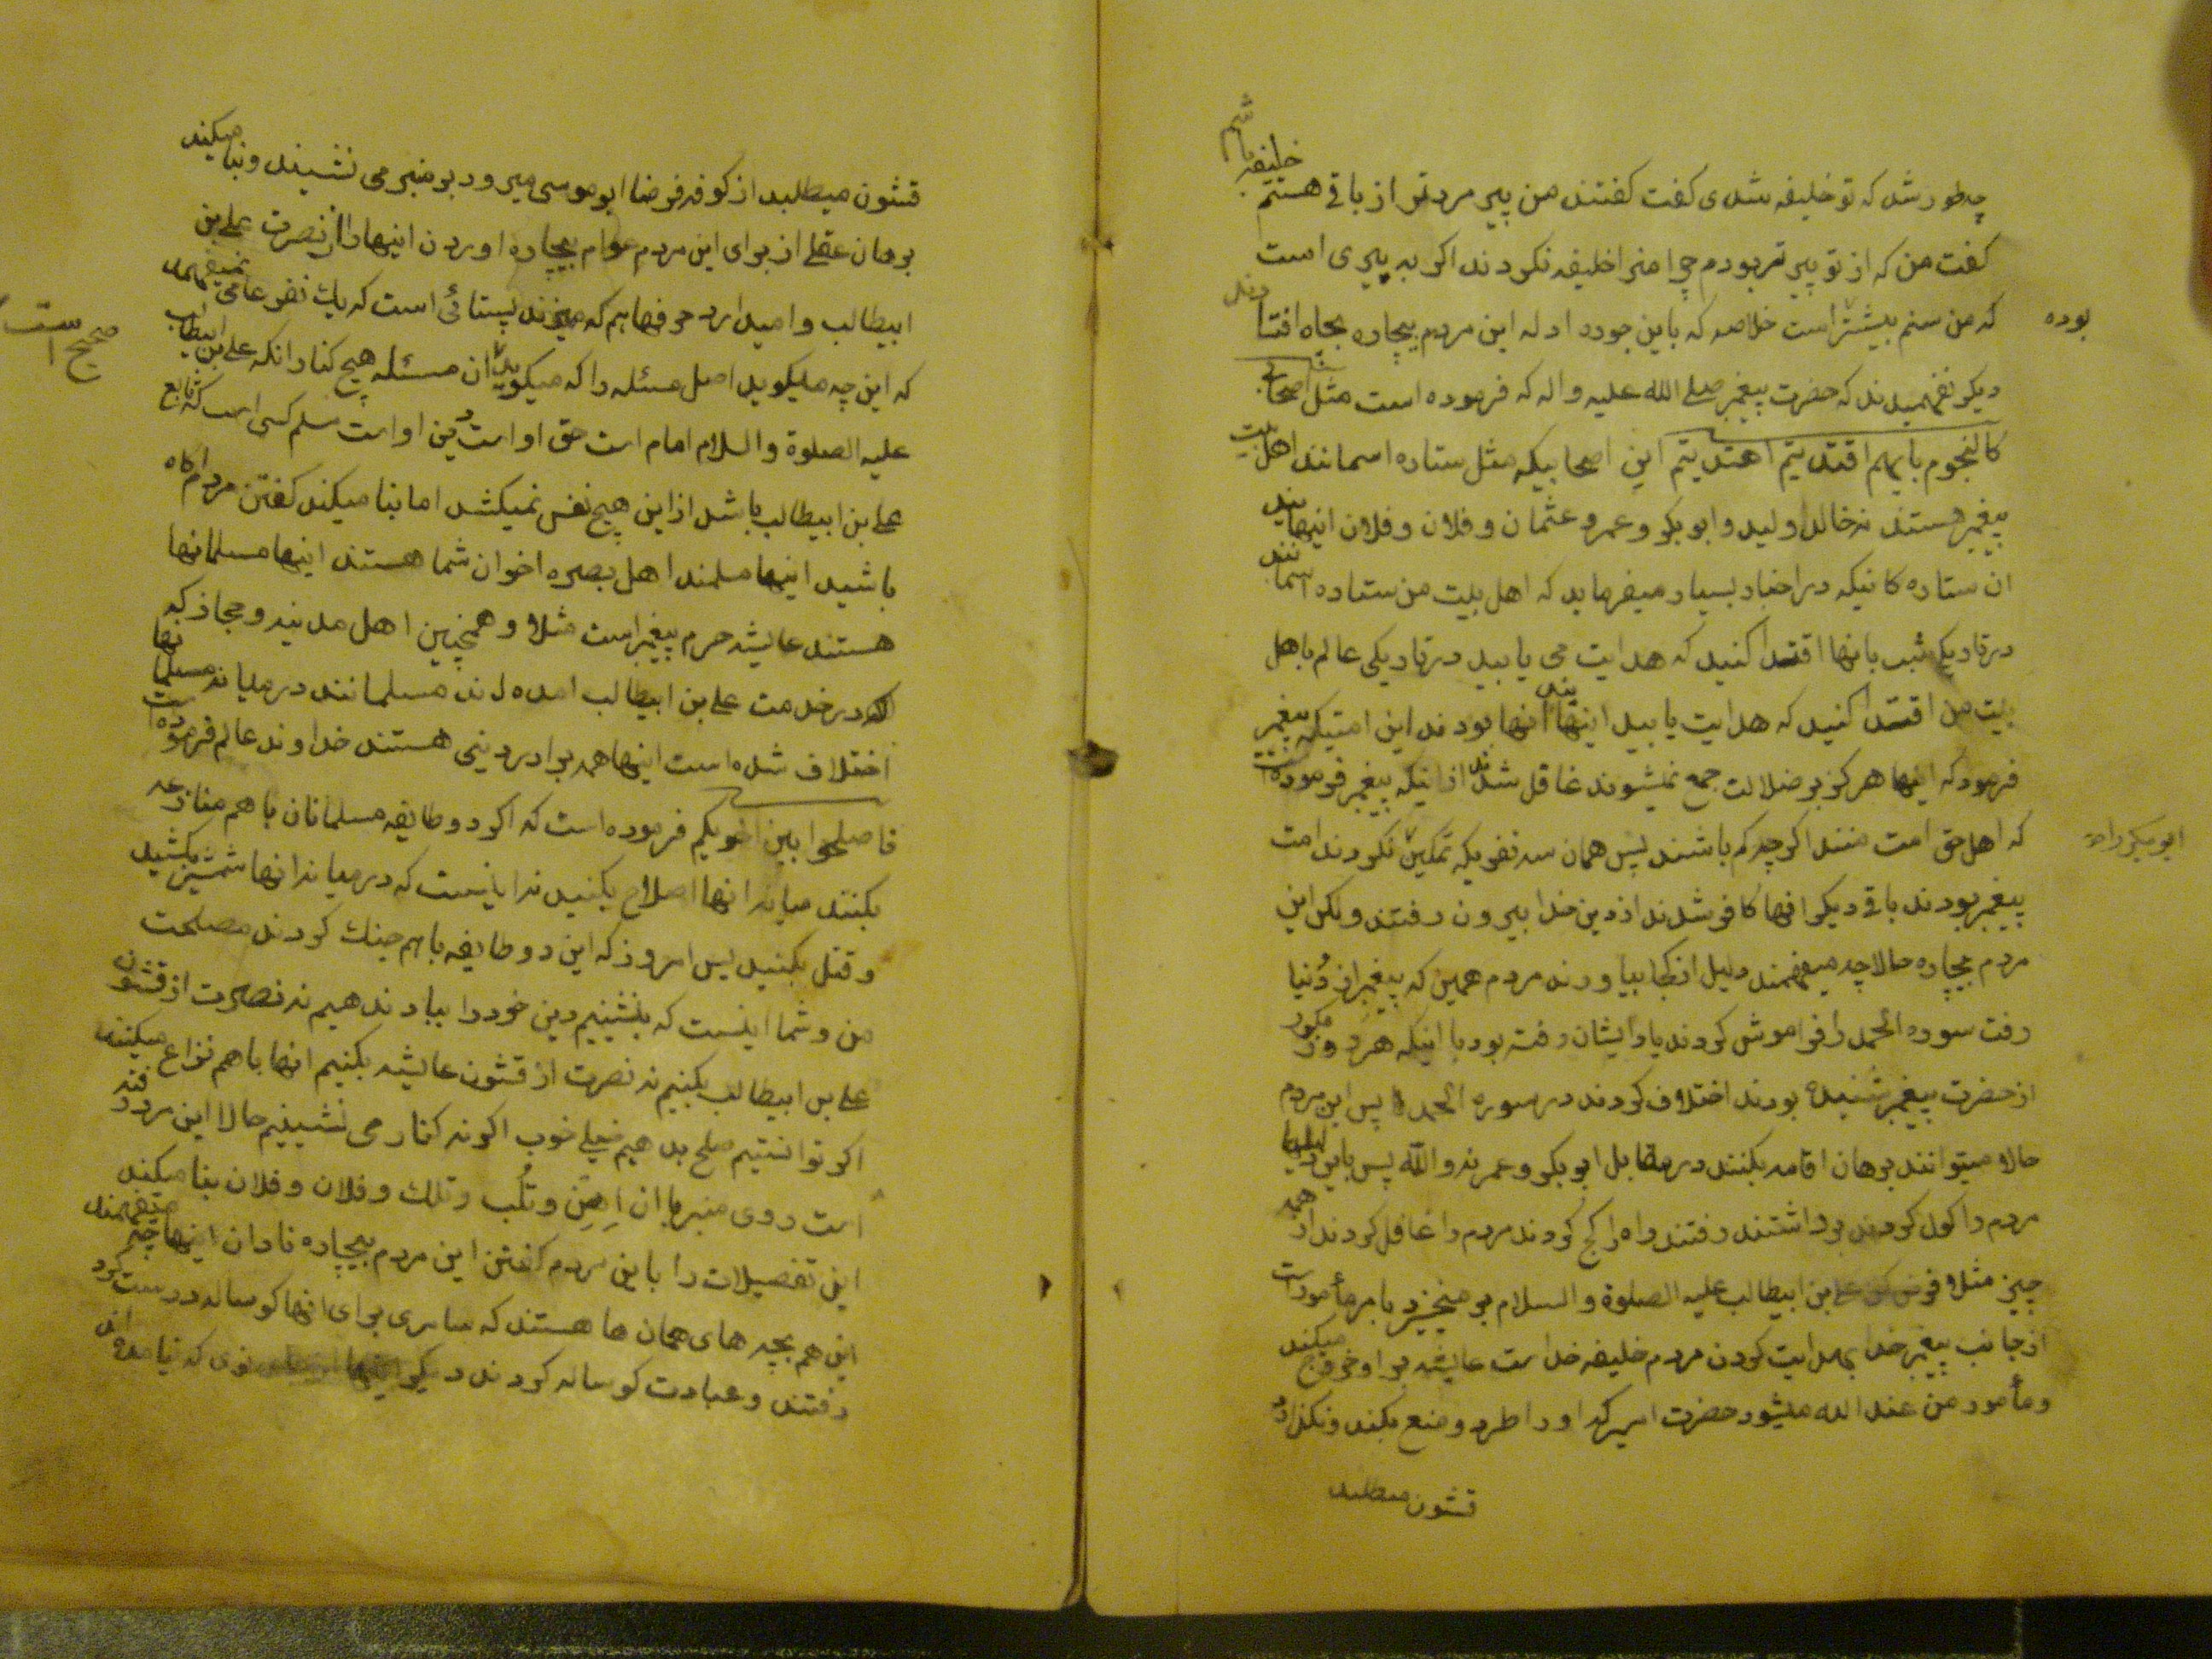 چه طور شد که تو خلیفه شدی کفت کفتند من پیر مردتر از باقی هستم خلیفه باشم
کفت من که از تو پیر تر بودم چرا منرا خلیفه نکردند اکر به پیری است
بوده
که من سنم بیشتر است خلاصه که باین جوره ادله این مردم بیچاره بچاه افتادند
دیکر نفهمیدند که حضرت پیغمبر صلی الله علیه واله که فرموده است مثل اصحابی
کالنجوم بایهم اقتدیتم اهتدیتم این اصحابیکه مثل ستاره اسمانند اهل بیت
پیغمبر هستند نه خالد ولید وابوبکر وعمر وعثمان وفلان وفلان اینهایند
ان ستاره کانیکه در اخبار بسیار میفرماید که اهل بیت من ستاره اسمانند
در تاریکی شب بانها اقتدا کنید که هدایت می یابید در تاریکی عالم باهل
بیت من اقتدا کنید که هدایت یابید اینهایند انها بودند این امتیکه پیغمبر
فرمود که اینها هرکز بر ضلالت جمع نمیشوند غافل شدند از اینکه پیغمبر فرموده است
که اهل حق امت منند اکرچه کم باشند پس همان سه نفریکه تمکین نکردند امت
ابوبکر را
پیغمبر بودند باقی دیکر انها کافر شدند از دین خدا بیرون رفتند ولکن این
مردم بیچاره حالا چه میفهمند دلیل از کجا بیاورند مردم همین که پیغمبر از دنیا
رفت سوره الحمد را فراموش کردند یاد ایشان رفته بود با اینکه هر روز مکرر
از حضرت پیغمبر شنیده بودند اختلاف کردند در سوره الحمد پس این مردم
حالا میتوانند برهان اقامه بکنند در مقابل ابوبکر وعمر نه والله پس باین دلیلها
مردم را کول کردند برداشتند رفتند راه را کج کردند مردم را غافل کردند از همه
چیز مثلا فرض کن علی بن ابیطالب علیه الصلوة والسلام بر میخیزد بامر مأموراست
از جانب پیغمبر خدا بهدایت کردن مردم خلیفه خداست عایشه بر او خروج میکند
ومأمور من عند الله میشود حضرت امیر که او را طرد ومنع بکند ونکذارد
قشون میطلبد
قشون میطلبد از کوفه فرضا ابوموسی میرود بر منبر می نشیند وبنا میکند
برهان عقلی از برای این مردم عوام بیچاره اوردن اینها را از نصرت علی بن
ابیطالب وامیدارد حرفها هم که میزند پستائی است که یک نفر عامی نمیفهمد
که این چه میکوید اصل مسئله را که میکوید ان مسئله هیچ کنار انکه علی بن ابیطالب
صحیح است
علیه الصلوة والسلام امام است حق اواست دین اواست مسلم کسی است که تابع
علی بن ابیطالب باشد از این هیچ نفس نمیکشد اما بنا میکند کفتن مردم اکاه
باشید اینها مسلمند اهل بصره اخوان شما هستند اینها مسلمانها
هستند عایشه حرم پیغمبر است مثلا وهمچنین اهل مدینه وحجاز که
که در خدمت علی بن ابیطالب امده اند مسلمانند در میانه مسلمانها
اختلاف شده است اینها همه برادر دینی هستند خداوند عالم فرموده است
فاصلحوا بین اخویکم فرموده است که اکر دو طایفه مسلمانان باهم منازعه
بکنند میانه انها اصلاح بکنید نه اینست که در میانه انها شمشیر بکشید
وقتل بکنید پس امروز که این دو طایفه باهم جنک کردند مصلحت
من وشما اینست که بنشینیم دین خود را بباد ندهیم نه نصرت از قشون
علی بن ابیطالب بکنیم نه نصرت از قشون عایشه بکنیم انها باهم نزاع میکنند
اکر توانستیم صلح بدهیم خیلی خوب اکر نه کنار می نشینیم حالا این مرد رفته
است روی منبر با ان وتلک وفلان وفلان بنا میکند
این تفصیلات را باین مردم کفتن این مردم بیچاره نادان اینها چه میفهمند
این هم بچه های همان ها هستند که سامری برای انها کوساله درست کرد
رفتند وعبادت کوساله کردند دیکر اینها که نیامده اند